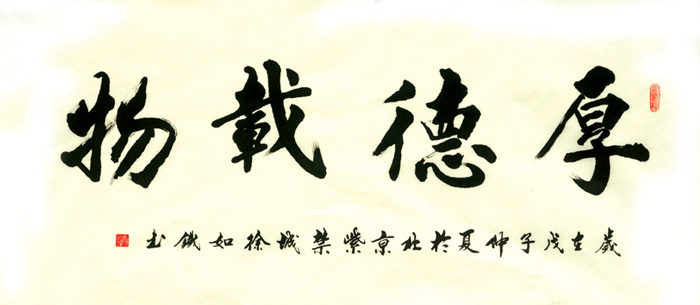 厚德載物
歲在戊子仲夏於北京紫禁城徐如鐵书